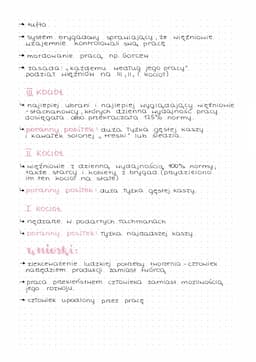 → tufta
→ system brygadowy sprawiający, że więźniowie
wzajemnie kontrolowali swą pracę
→ mordowanie pracą np. Gorcew
→ zasada: „każdemu według jego pracy"
podział więźniów na III, II, I kocioł
III kocioł
↳ najlepiej ubrani i najlepiej wyglądający więźniowie
- stachanowcy, których dzienna wydajność pracy
dosięgała albo przekraczała 125% normy.
↳ poranny posiłek: duża łyżka gęstej kaszy
i kawałek solonej „treski" lub śledzia.
II kocioł
↳ więźniowie z dzienną wydajnością 100% normy,
także starcy i kobiety z brygad (przydzielono
im ten kocioł na stałe)
↳ poranny posiłek: duża łyżka gęstej kaszy.
I kocioł
↳ nędzarze w podartych łachmanach
↳ poranny posiłek: łyżka najrzadszej kaszy
wnioski:
→ zlekceważenie ludzkiej potrzeby tworzenia - człowiek
narzędziem produkcji zamiast twórcą
→ praca przekleństwem człowieka zamiast możliwością
jego rozwoju.
→ człowiek upodlony przez pracę